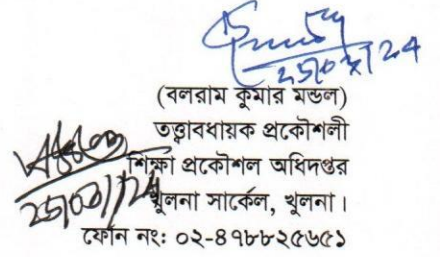 25/03/24
(বলরাম কুমার মন্ডল)
তত্ত্বাবধায়ক প্রকৌশলী
শিক্ষা প্রকৌশল অধিদপ্তর
25/03/24
খুলনা সার্কেল, খুলনা।
ফোন নং: ০২-৪৭৮৮২৫৬৫১